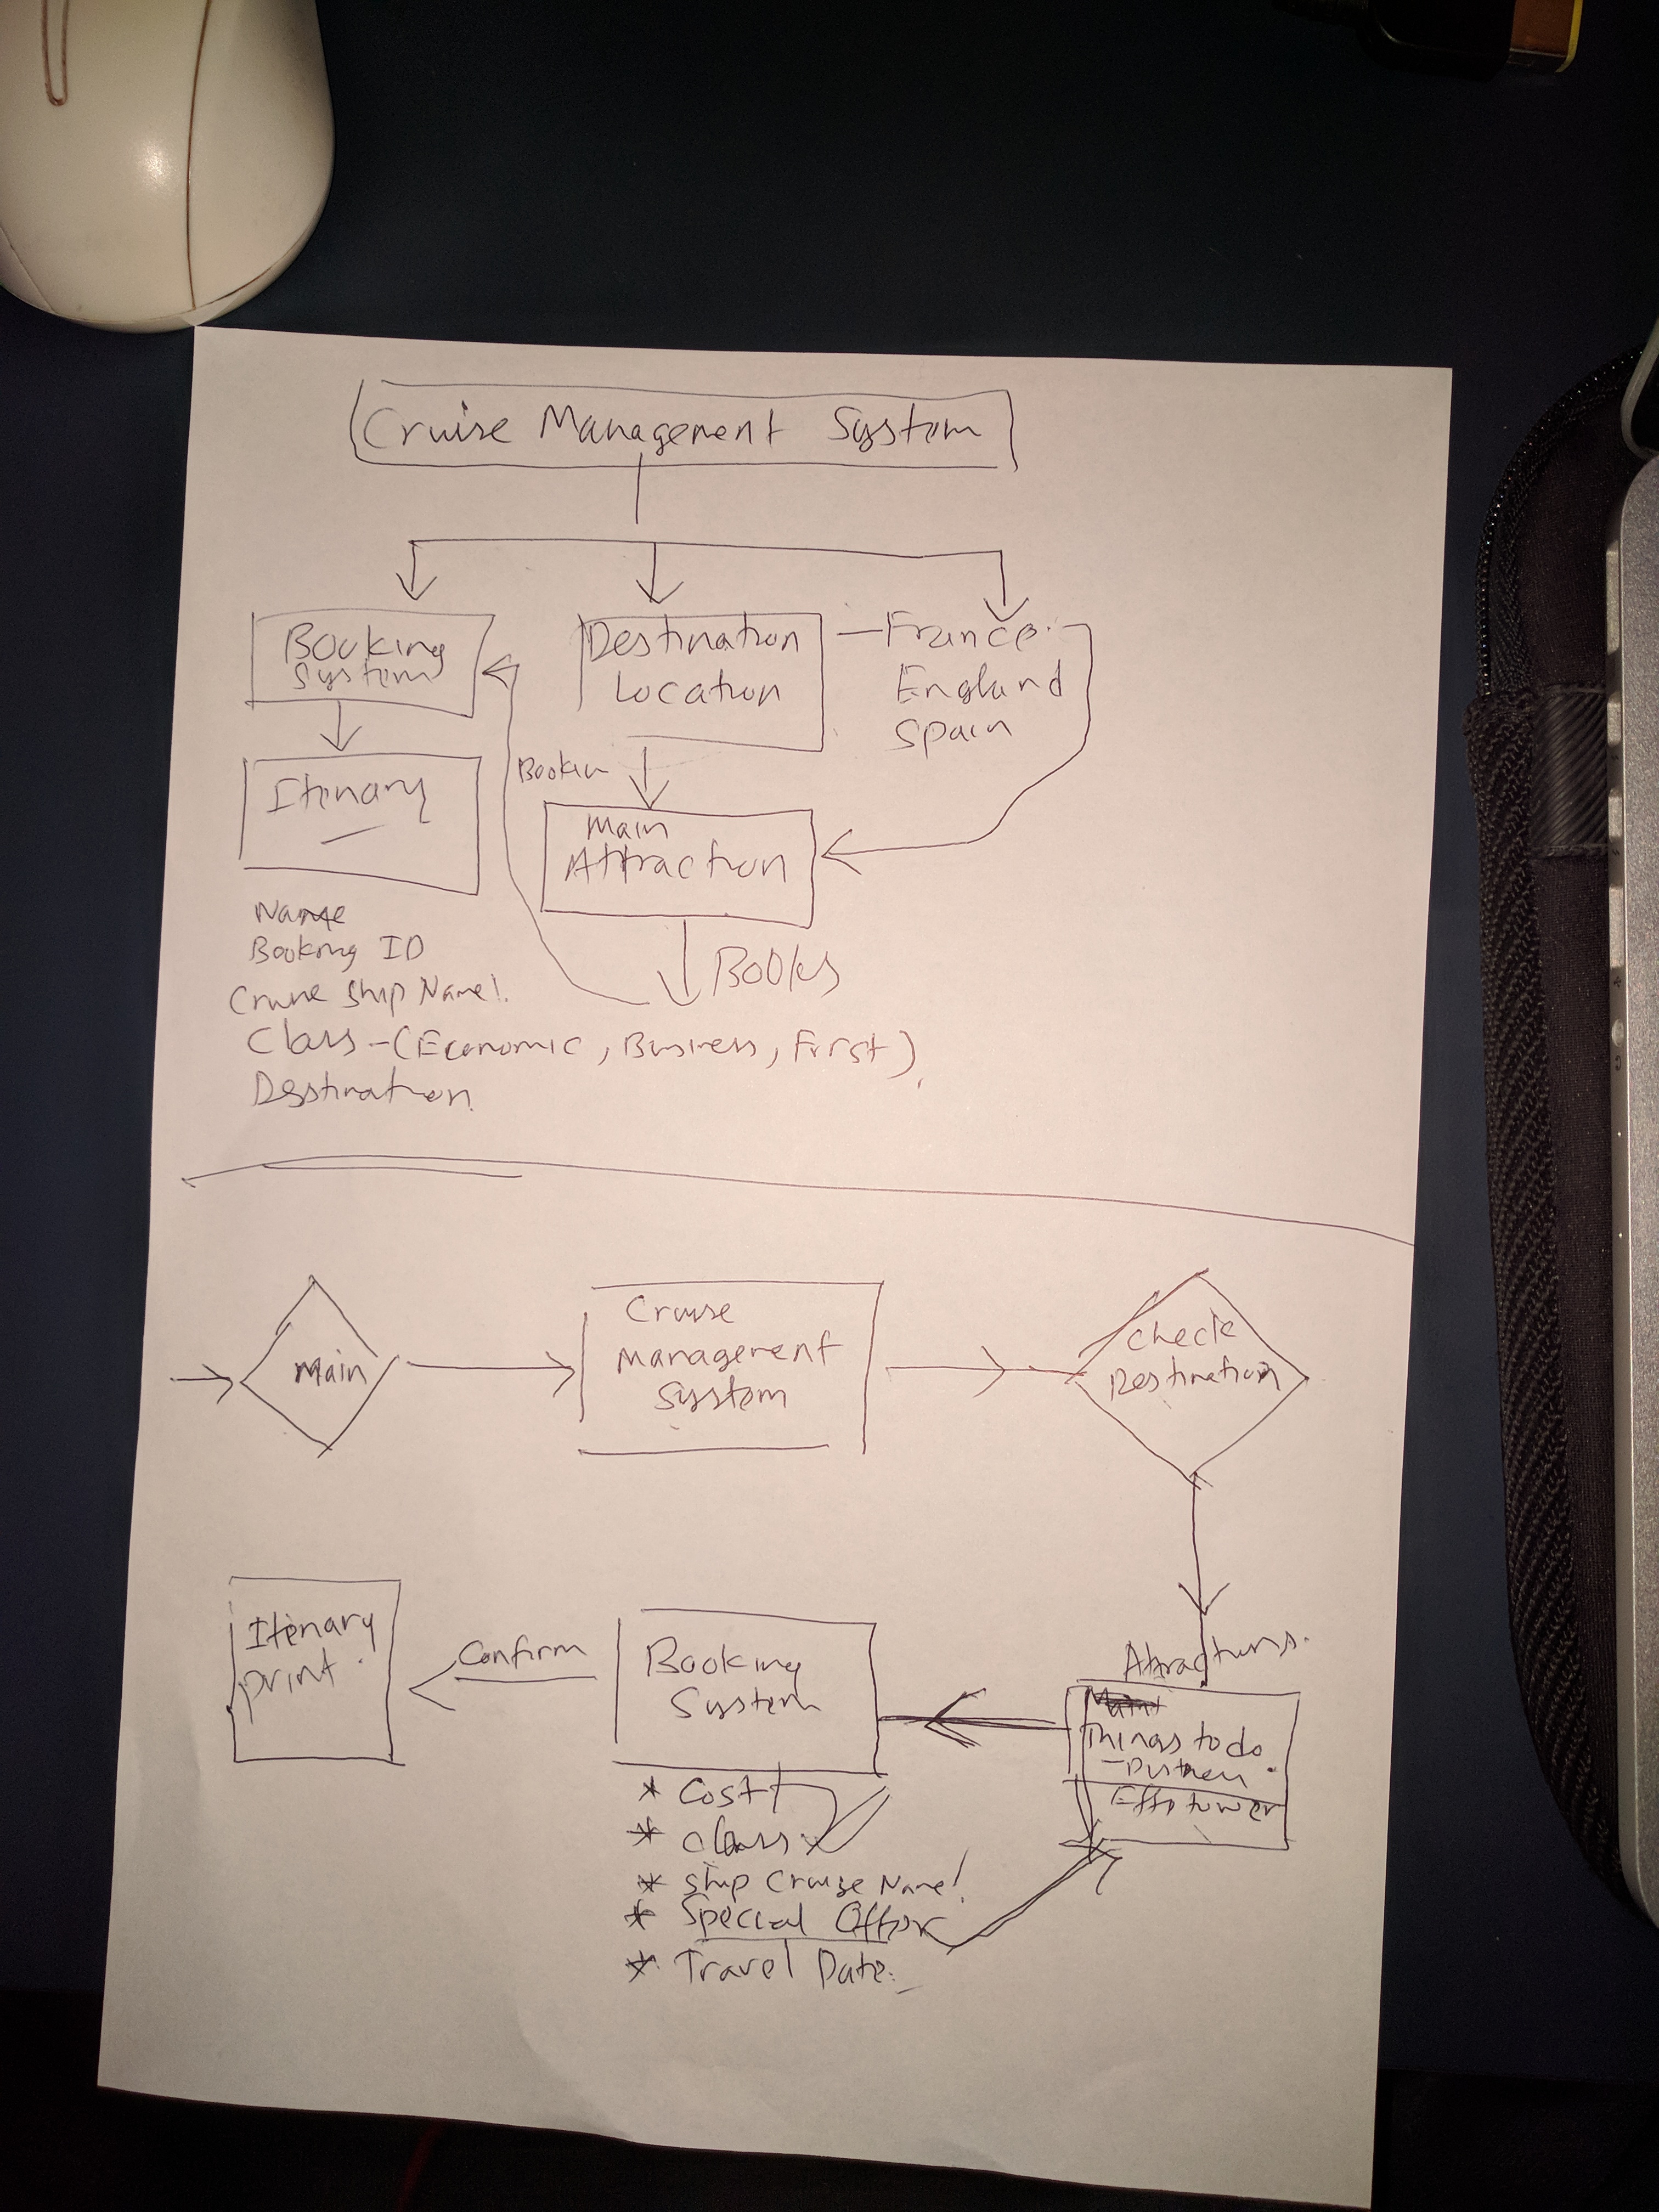 Cruise Management System
Booking
System
Destination
Location
France
England
Spain
Itenary
Main
Attraction
Books
Name
Booking ID
Cruise Ship Name!
Class - (Economic, Business, First)
Destination
Main
Cruise
Management
System
Check
Destination
Attractions.
Things to do
Booking
System
Confirm
Itenary
print
* Cost
* Class
* Ship Cruise Name!
* Special Offer
* Travel Date